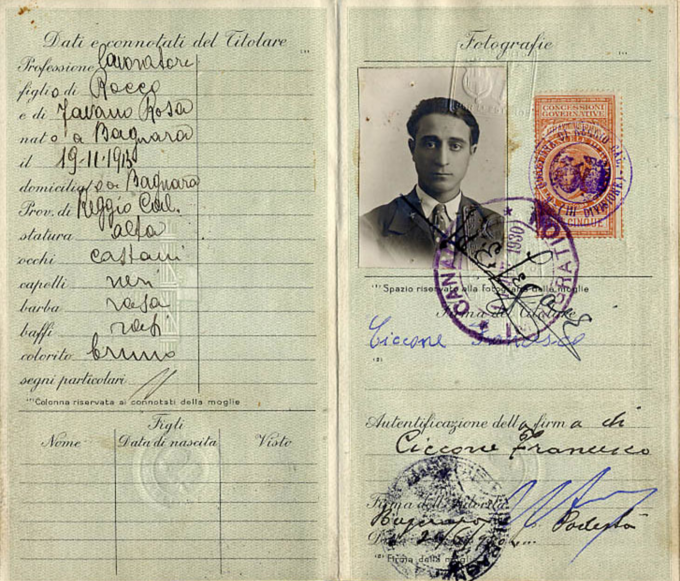 Dati e connotati del Titolare
Professione lavoratore
figlio di Rocco
e di Zavano Rosa
nato a Bagnara
il 19-11-1913
domiciliato a Bagnara
Prov. di Reggio Cal.
statura alta
occhi castani
capelli neri
barba rasa
baffi rasi
colorito bruno
segni particolari //
(1) Colonna riservata ai connotati della moglie
Figli
Nome Data di nascita Visto
Fotografie
CONCESSIONI
GOVERNATIVE
CINQUE
CANAD
1930
IMMIGRATION
(1) Spazio riservato alla fotografia della moglie
Firma del titolare
Ciccone Francesco
(2)
Autentificazione della firma di
Ciccone Francesco
Firma dell'Autorità
Podestà
Data
(2) Firma della moglie